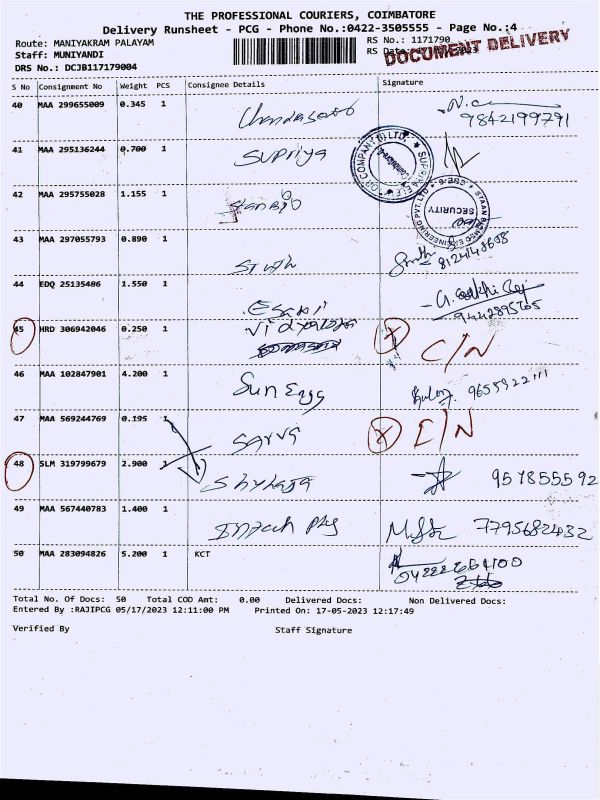 THE PROFESSIONAL COURIERS, COIMBATORE
Delivery Runsheet - PCG - Phone No.:0422-3505555 - Page No.:4
Route: MANIYAKRAM PALAYAM
RS No.: 1171790
Staff: MUNIYANDI
RS Date:
DOCUMENT DELIVERY
DRS No.: DCJB117179004
S No Consignment No Weight PCS Consignee Details Signature
40 MAA 299655009 0.345 1
9842199791
41 MAA 295136244 0.700 1 Supriya
42 MAA 295755028 1.155 1
SECURITY
43 MAA 297055793 0.890 1
44 EDQ 25135486 1.550 1
45 HRD 306942046 0.250 1 Vidyalaya C/N
46 MAA 102847901 4.200 1 Sun Eggs
47 MAA 569244769 0.195 1 Sarva C/N
48 SLM 319799679 2.900 1 Shylaja 9578555592
49 MAA 567440783 1.400 1 7795682432
50 MAA 283094826 5.200 1 KCT
Total No. Of Docs: 50 Total COD Amt: 0.00 Delivered Docs: Non Delivered Docs:
Entered By :RAJIPCG 05/17/2023 12:11:00 PM Printed On: 17-05-2023 12:17:49
Verified By Staff Signature